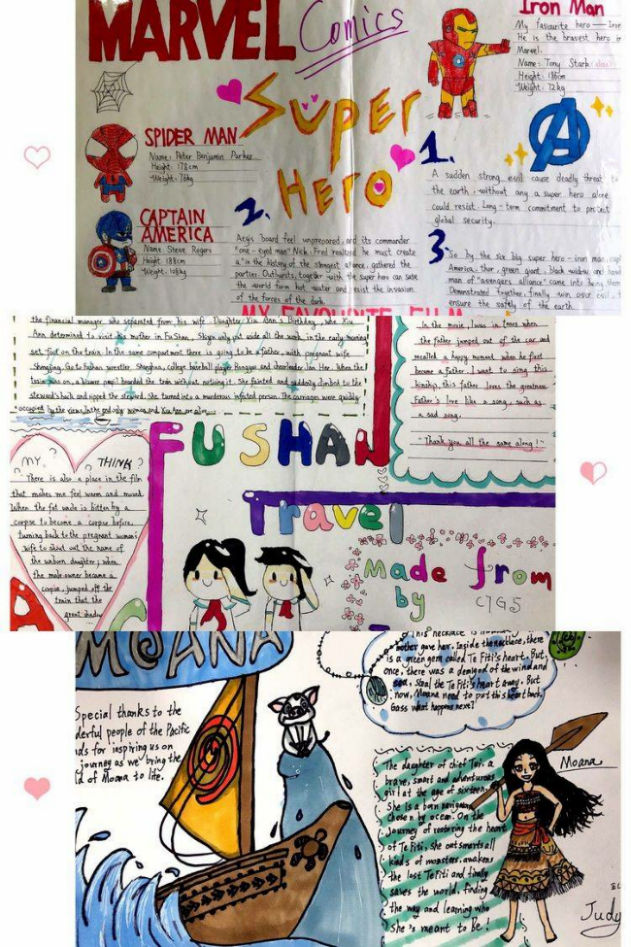 MARVEL
Comics
Super
HERO
Iron Man
My favourite hero — Iron
He is the bravest hero in
Marvel.
Name: Tony Stark
Height: 186cm
Weight: 72kg
SPIDER MAN
Name: Peter Benjamin Parker
Height: 178cm
Weight: 76kg
CAPTAIN
AMERICA
Name: Steve Rogers
Height: 188cm
Weight: 108kg
A
1.
A sudden strong evil cause deadly threat to
the earth, without any a super hero alone
could resist. Long-term commitment to protect
global security.
2.
board feel unprepared, and its commander
"one-eyed man" Nick realized he must create
a in the history of the strongest alliance, gathered the
parties. Outbursts, together with the super hero can save
the world from hot water and resist the invasion
of the forces of the dark.
3
So by the six big super hero - iron man, cap
America, thor, green giant, black widow and hawk
man of "avengers alliance" came into being them.
Demonstrated together, finally win over evil, t
ensure the safety of the earth.
MY FAVOURITE FILM
the financial manager who separated from his wife. Daughter Xiu Ann's Birthday, who Xiu
Ann determined to visit his mother in FuShan, Shiyu only put aside all the work, in the early morning
set foot on the train. In the same compartment there is going to be a father, with pregnant wife
Shengjing. Go to fushan wrestler Shanghua, college baseball player Yongguo and cheerleader Jan Hee. When the
train was on, a blower pupil boarded the train without noticing it. She fainted and suddenly climbed to the
steward's back and ripped the steward. She turned into a murderous infected person. The carriages were quickly
occupied by the virus. In the end only
In the movie, I was in tears when
the father jumped out of the car and
recalled a happy moment when he first
became a father. I want to sing this
kinship, this father loves the greatness
Father's love like a song, such as
a sad song.
"Thank you all the same along!"
MY THINK
There is also a place in the film
that makes me feel warm and moved.
When the fat uncle is bitten by a
corpse to become a corpse before,
turning back to the pregnant woman's
wife to shout out the name of
the unborn daughter, when
the male owner became a
corpse, jumped off the
train that the
great shadow
FUSHAN
Travel
Made from
by C7G5
MOANA
Special thanks to the
derful people of the Pacific
nds for inspiring us on
journey as we bring the
ld of Moana to life.
This necklace is
mother gave her. Inside the necklace, there
is a green gem called Te Fiti's heart. But
once, there was a demigod of the wind and
sea, steal the Te Fiti's heart away. But
now, Moana need to put this heart back.
Gass what happens next?
Moana
The daughter of chief Tui, a
brave, smart and adventurous
girl at the age of sixteen.
She is a born navigator
chosen by ocean. On the
journey of restoring the heart
of Te Fiti, she outsmarts all
kinds of monsters, awakens
the lost Te Fiti and finally
saves the world, finding
the way and learning who
she is meant to Be!
Judy